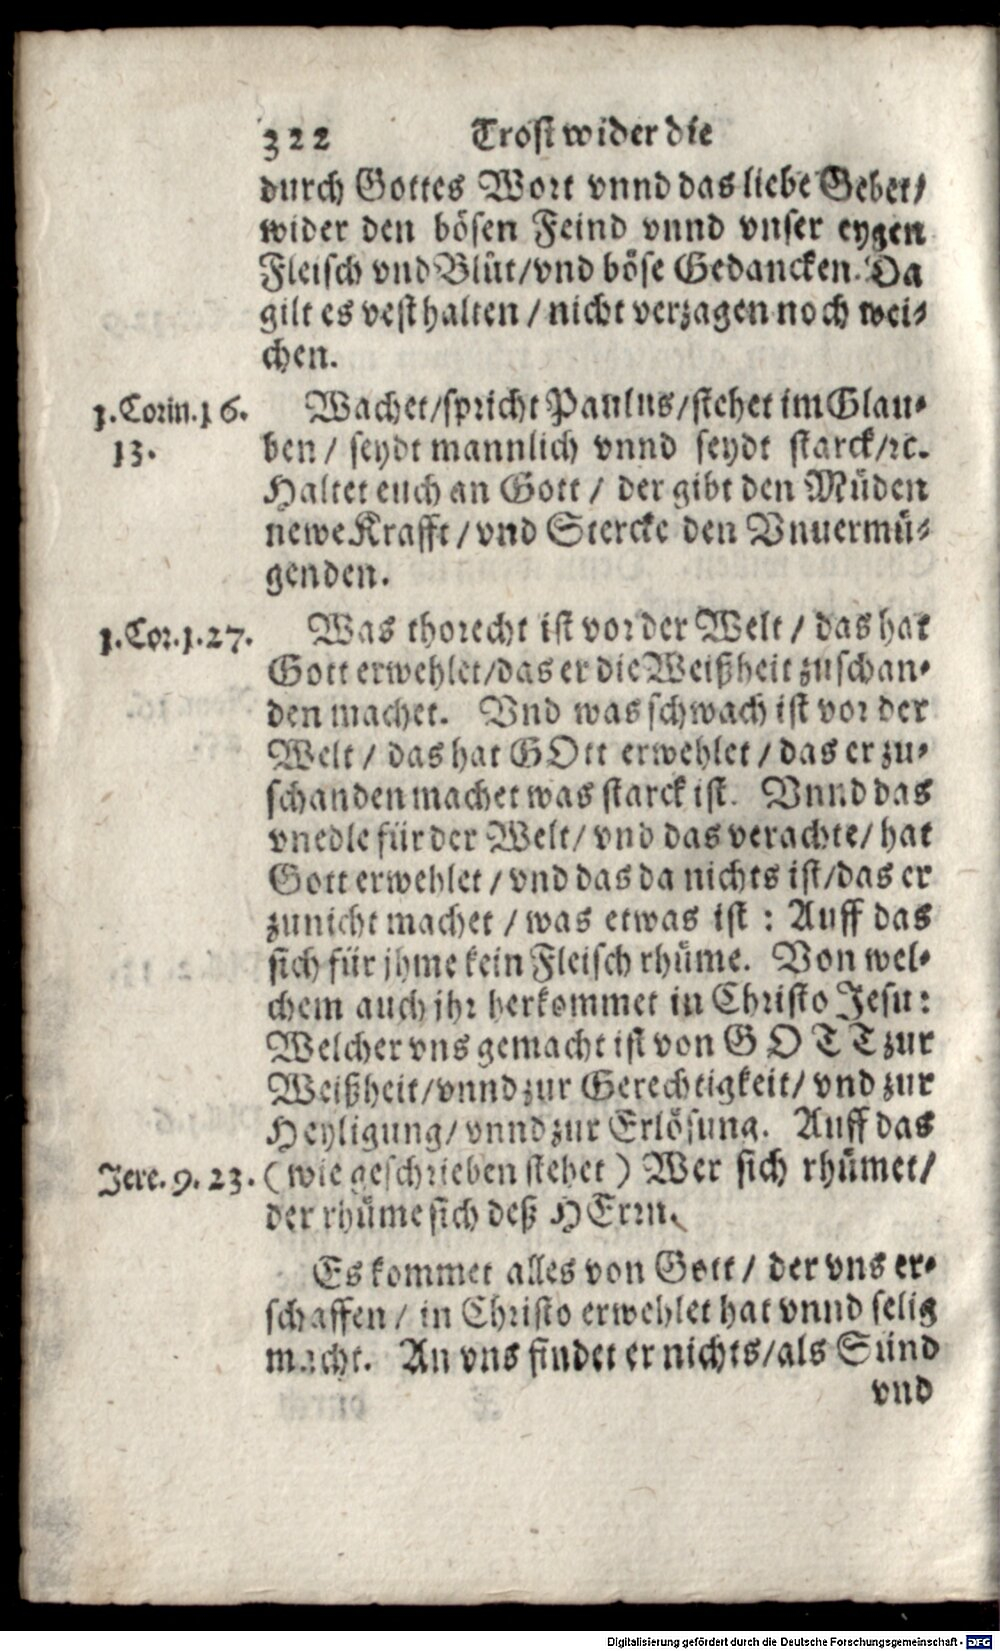 322 Trost wider die
durch Gottes Wort vnnd das liebe Gebet/
wider den bösen Feind vnnd vnser eygen
Fleisch vnd Blüt/vnd böse Gedancken. Da
gilt es vest halten / nicht verzagen noch wei-
chen.
1.Corin.16. Wachet/spricht Paulus/stehet im Glau-
13. ben / seydt mannlich vnnd seydt starck/ꝛc.
Haltet euch an Gott / der gibt den Müden
newe Krafft / vnd Stercke den Vnuermü-
genden.
1.Cor.1.27. Was thorecht ist vor der Welt / das hat
Gott erwehlet/das er die Weißheit zuschan-
den machet. Vnd was schwach ist vor der
Welt / das hat GOtt erwehlet / das er zu-
schanden machet was starck ist. Vnnd das
vnedle für der Welt/ vnd das verachte/ hat
Gott erwehlet / vnd das da nichts ist/das er
zunicht machet / was etwas ist : Auff das
sich für jhme kein Fleisch rhüme. Von wel-
chem auch jhr herkommet in Christo Jesu:
Welcher vns gemacht ist von GOTT zur
Weißheit/vnnd zur Gerechtigkeit/ vnd zur
Heyligung/ vnnd zur Erlösung. Auff das
Jere. 9. 23. (wie geschrieben stehet) Wer sich rhümet/
der rhüme sich deß HErrn.
Es kommet alles von Gott / der vns er-
schaffen / in Christo erwehlet hat vnnd selig
macht. An vns findet er nichts/als Sünd
vnd
Digitalisierung gefördert durch die Deutsche Forschungsgemeinschaft - DFG